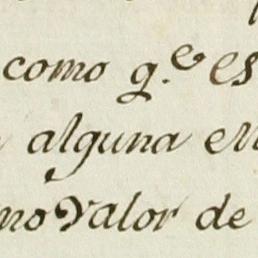 como q.e es
alguna en
mo valor de